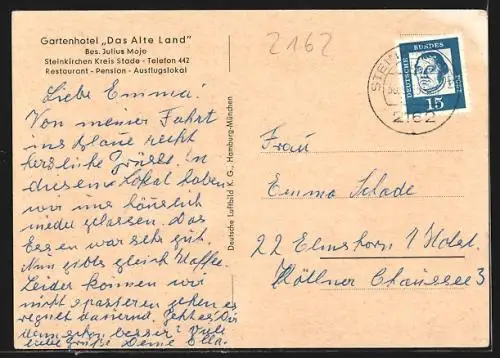 Gartenhotel „Das Alte Land"
Bes. Julius Moje
Steinkirchen Kreis Stade - Telefon 442
Restaurant - Pension - Ausflugslokal
2162
Liebe Emma!
Von meiner Fahrt
ins blaue recht
herzliche Grüsse. In
diesem Lokal haben
wir uns häuslich
nieder gelassen. Das
Essen war sehr gut.
Nun gibts gleich Kaffee.
Leider können wir
nicht spazieren gehen es
regnet dauernd. Geht es Dir
denn schon besser? Viele
liebe Grüße Deine Ella.
Deutsche Luftbild K. G., Hamburg-München
DEUTSCHE BUNDESPOST
15
STEIN
2162
Frau
Emma Schade
22 Elmshorn / Holst.
Köllner Chaussee 3